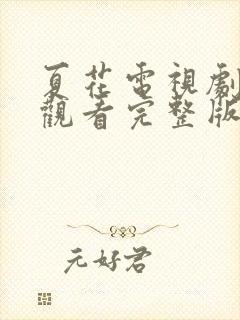 夏花電視劇
觀看完整版
元好君